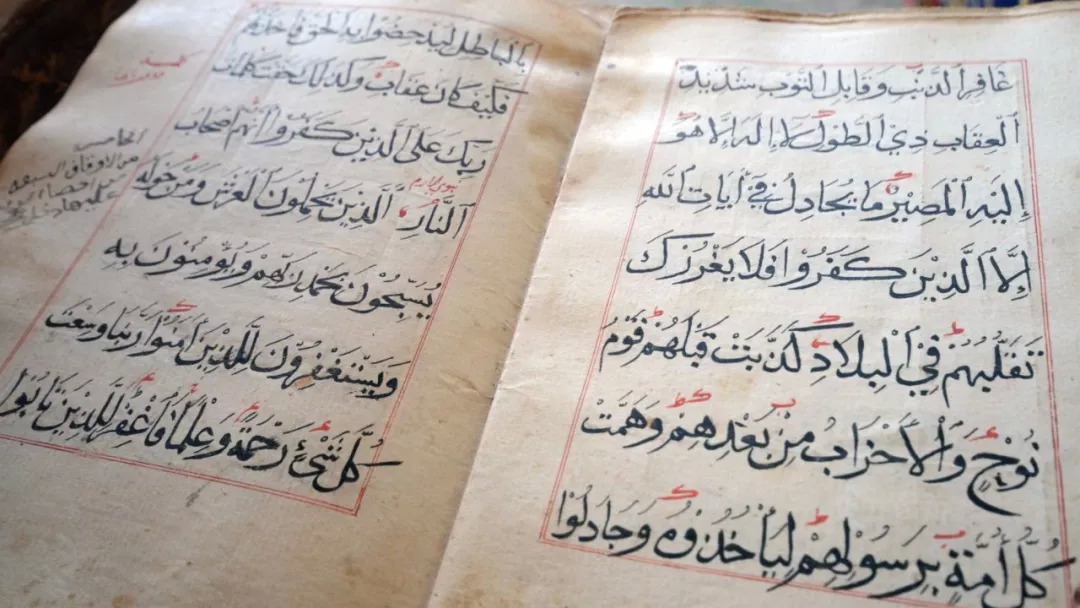 غَافِرِ ٱلذَّنۢبِ وَقَابِلِ ٱلتَّوۡبِ شَدِيدِ
ٱلۡعِقَابِ ذِي ٱلطَّوۡلِ لَا إِلَهَ إِلَّا هُوَ
إِلَيۡهِ ٱلۡمَصِيرُ مَا يُجَادِلُ فِي آيَاتِ ٱللَّهِ
إِلَّا ٱلَّذِينَ كَفَرُوا فَلَا يَغۡرُرۡكَ
تَقَلُّبُهُمۡ فِي ٱلۡبِلَادِ كَذَّبَتۡ قَبۡلَهُمۡ قَوۡمُ
نُوحٍ وَٱلۡأَحۡزَابُ مِنۢ بَعۡدِهِمۡ وَهَمَّتۡ
كُلُّ أُمَّةٍ بِرَسُولِهِمۡ لِيَأۡخُذُوهُ وَجَادَلُوا
بِٱلۡبَاطِلِ لِيُدۡحِضُوا بِهِ ٱلۡحَقَّ فَأَخَذۡتُهُمۡ
فَكَيۡفَ كَانَ عِقَابِ وَكَذَلِكَ حَقَّتۡ كَلِمَاتُ
رَبِّكَ عَلَى ٱلَّذِينَ كَفَرُوا أَنَّهُمۡ أَصۡحَابُ
ٱلنَّارِ ٱلَّذِينَ يَحۡمِلُونَ ٱلۡعَرۡشَ وَمَنۡ حَوۡلَهُ
يُسَبِّحُونَ بِحَمۡدِ رَبِّهِمۡ وَيُؤۡمِنُونَ بِهِ
وَيَسۡتَغۡفِرُونَ لِلَّذِينَ آمَنُوا رَبَّنَا وَسِعۡتَ
كُلَّ شَيۡءٍ رَحۡمَةً وَعِلۡمًا فَٱغۡفِرۡ لِلَّذِينَ تَابُوا